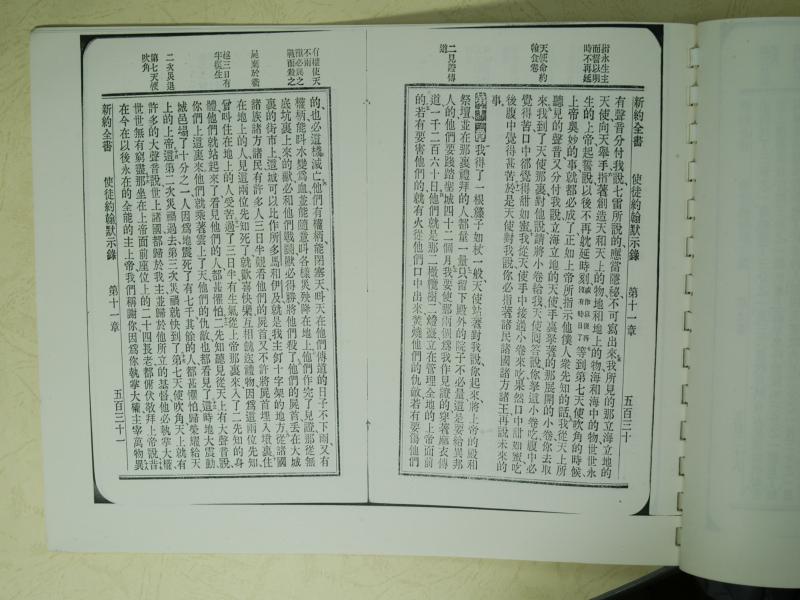 新約全書　使徒約翰默示錄　第十章　五百三十
有聲音分付我說七雷所說的應當隱秘不可寫出來我所見的那立海立地的
天使向天舉手指著創造天和天上的物地和地上的物海和海中的物世世永
生的上帝起誓說以後不再躭延時刻等到第七天使吹角的時候
上帝奧妙的事就都必成了正如上帝所指示他僕人衆先知的話我從天上所
聽見的聲音又分付我說立海立地的天使手裏拏著的那展開的小卷你去取
來我到了天使那裏對他說請將小卷給我天使回答說你拏這小卷吃腹中必
覺得苦口中卻覺得甜如蜜我從天使手中接過小卷來吃果然口中甜如蜜吃
後腹中覺得甚苦於是天使對我說你必指著諸民諸國諸方諸王再說未來的
事
我得了一根籐子如杖一般天使站著對我說你起來將上帝的殿和
祭壇並在那裏禮拜的人都量一量只留下殿外的院子不必量這是要給異邦
人的他們要踐踏聖城四十二個月我要使那兩個爲我作見證的穿著麻衣傳
道一千二百六十日他們就是那二橄欖樹二燈臺立在管理全地的上帝面前
的若有要害他們的就有火從他們口中出來焚燒他們的仇敵若有要傷他們
指永生主
而誓以明
時不再延
天使命約
翰食卷
二見證傳
道
新約全書　使徒約翰默示錄　第十一章　五百三十一
的也必這樣滅亡他們有權柄能閉塞天叫天在他們傳道的日子不下雨又有
權柄能叫水變爲血並能隨意叫各樣災殃降在地上他們作完了見證那從無
底坑裏上來的獸必和他們戰鬭獸必得勝將他們殺了他們的屍首丟在大城
裏的街市上這城可以比作所多馬和伊及就是我主釘十字架的地方從諸國
諸族諸方諸民有許多人三日半觀看他們的屍首又不許將屍首埋入墳裏住
在地上的人見這兩位先知死了就歡喜快樂互相餽送禮物因爲這兩位先知
曾叫住在地上的人受苦過了三日半有生氣從上帝那裏來入了二先知的身
體他們就站起來了看見他們的人都甚懼怕二先知聽見從天上有大聲音說
你們上這裏來他們就乘著雲上了天他們的仇敵也都看見了這時地大震動
城邑塌了十分之一人因爲地震死了有七千其餘的人都甚懼怕歸榮耀給天
上的上帝這第二次災禍過去第三次災禍就快到了第七天使吹角天上就有
許多的大聲音說世上諸國都歸於我主並歸於他所立的基督他必執掌大權
世世無有窮盡那坐在上帝面前座位上的二十四長老都俯伏敬拜上帝說昔
在今在以後永在的全能的主上帝我們稱謝你因爲你執掌大權主宰萬物異
有權使天
不雨
獸必與之
戰而殺之
屍棄於衢
越三日有
半復生
二次災退
第七天使
吹角